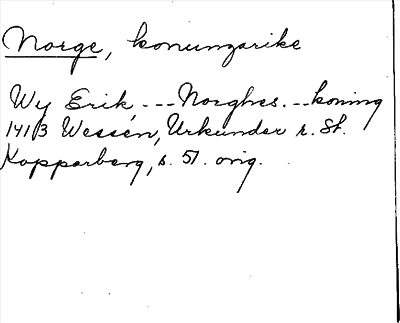 Norge, konungarike
Wy Erik, --- Norghes --- koning
1413 Wessén, Urkunder r. St.
Kopparberg, s. 51. orig.